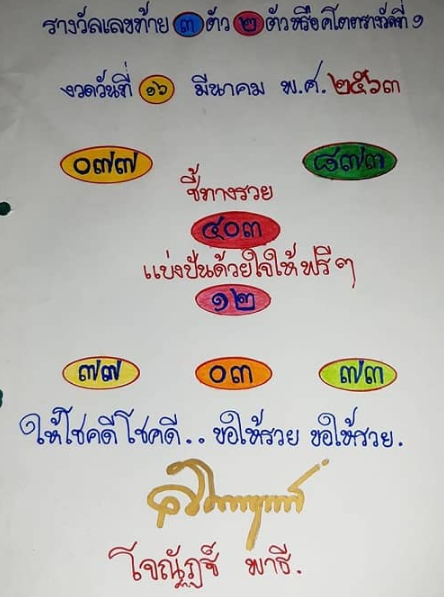 รางวัลเลขท้าย ๓ ตัว ๒ ตัวหรือ
งวดวันที่ ๑๖ มีนาคม พ.ศ. ๒๕๖๓
๐๗๗ ๘๗๓
ชี้ทางรวย
๔๐๓
แบ่งปันด้วยใจให้ฟรีๆ
๑๒
๗๗ ๐๓ ๗๓
ให้โชคดี โชคดี.. ขอให้รวย ขอให้รวย.
พาธี.